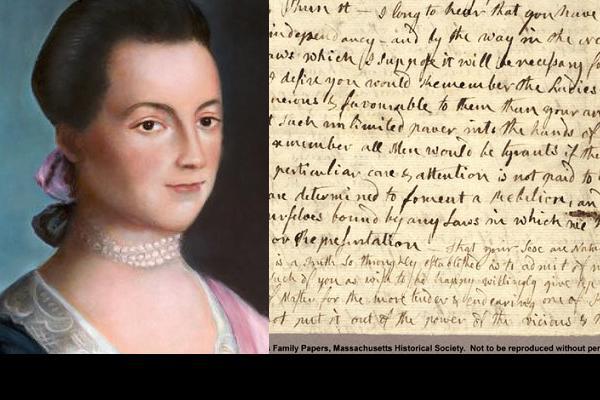 them it — I long to hear that you have
independancy — and by the way in the
aws which I suppose it will be necessary
I desire you would Remember the Ladies
nerous & favourable to them than your an
t such unlimited power into the hands of
emember all Men would be tyrants if the
perticuliar care & attention is not paid to
are determined to foment a Rebelion, and
urselves bound by any Laws in which we
or Representation
that your Sex are Natu
is a Truth so throughly established as to admit of
such of you as wish to be happy willingly give up
of Master for the more tender & endearing one of
ot put it out of the power of the vicious &
Family Papers, Massachusetts Historical Society. Not to be reproduced without per